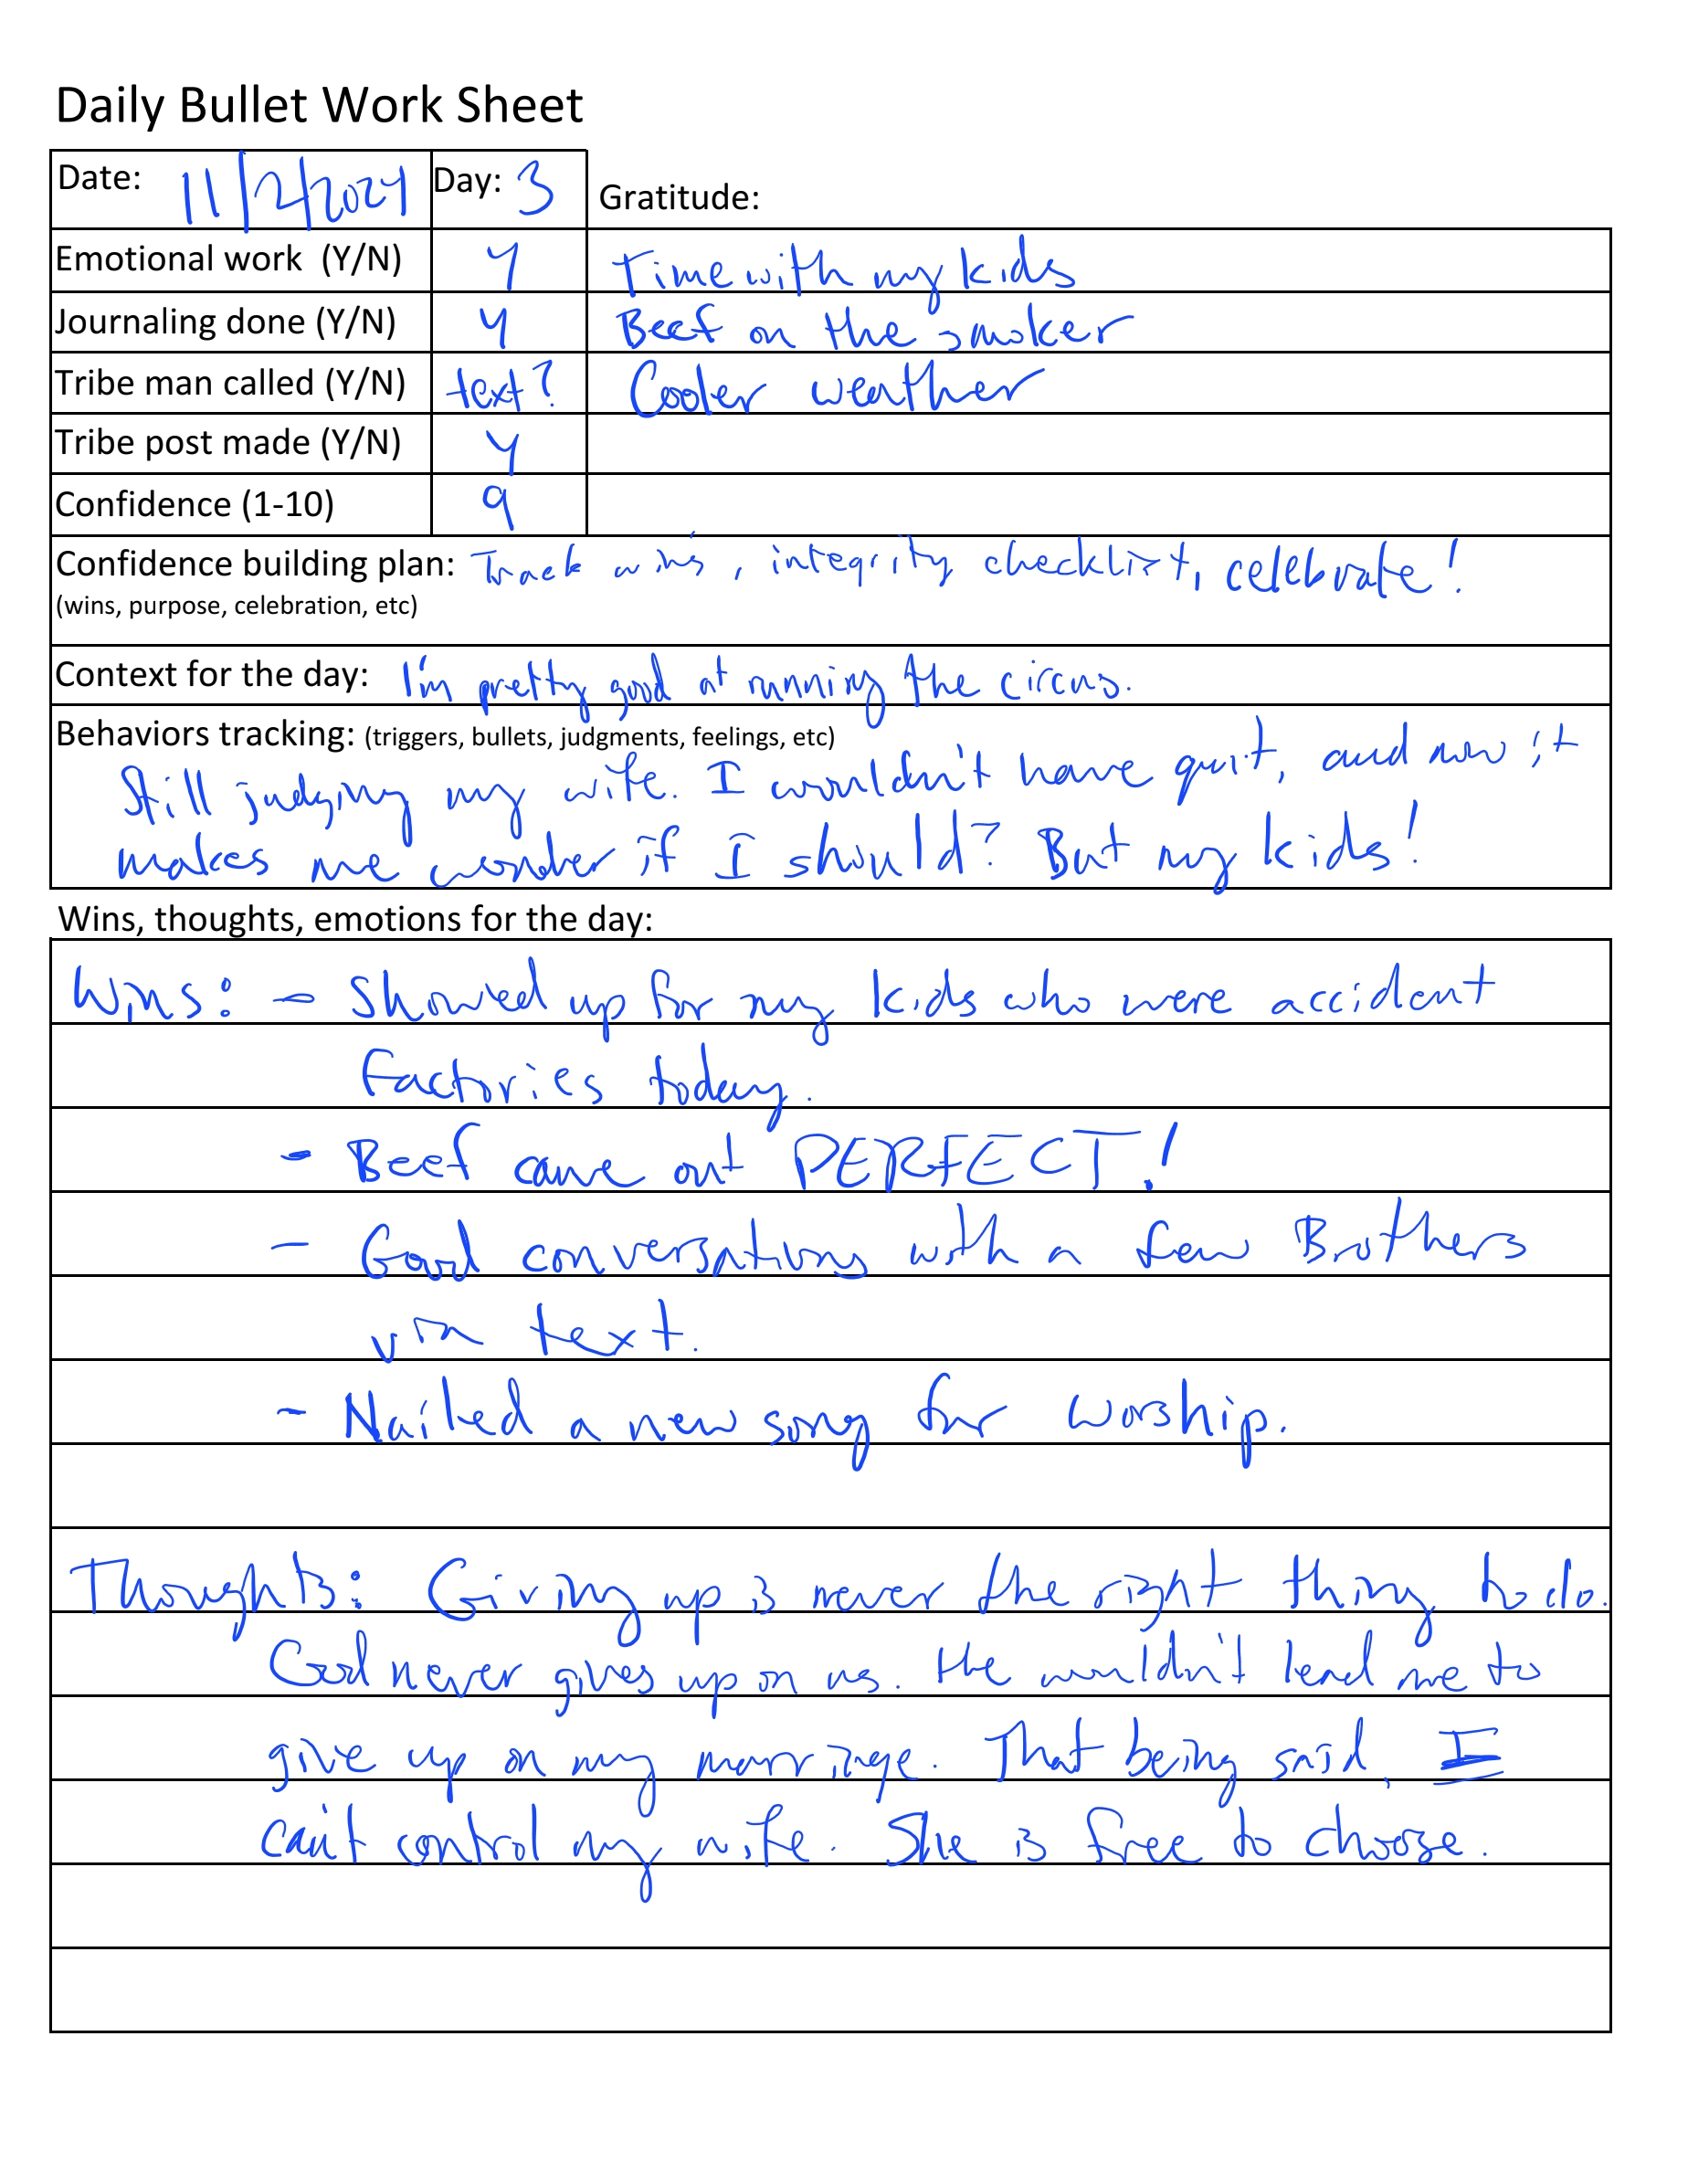 Daily Bullet Work Sheet
Date: 11/2/2024 Day: 3 Gratitude:
Emotional work (Y/N) Y Time with my kids
Journaling done (Y/N) Y Beef on the smoker
Tribe man called (Y/N) text? Cooler weather
Tribe post made (Y/N) Y
Confidence (1-10) 9
Confidence building plan: Track wins, integrity checklist, celebrate!
(wins, purpose, celebration, etc)
Context for the day: I'm pretty good at running the circus.
Behaviors tracking: (triggers, bullets, judgments, feelings, etc)
Still judging my wife. I wouldn't have quit, and now it
makes me wonder if I should? But my kids!
Wins, thoughts, emotions for the day:
Wins: - Showed up for my kids who were accident
factories today.
- Beef came out PERFECT!
- Good conversations with a few Brothers
via text.
- Nailed a new song for worship.
Thoughts: Giving up is never the right thing to do.
God never gives up on us. He wouldn't lead me to
give up on my marriage. That being said, I
can't control my wife. She is free to choose.